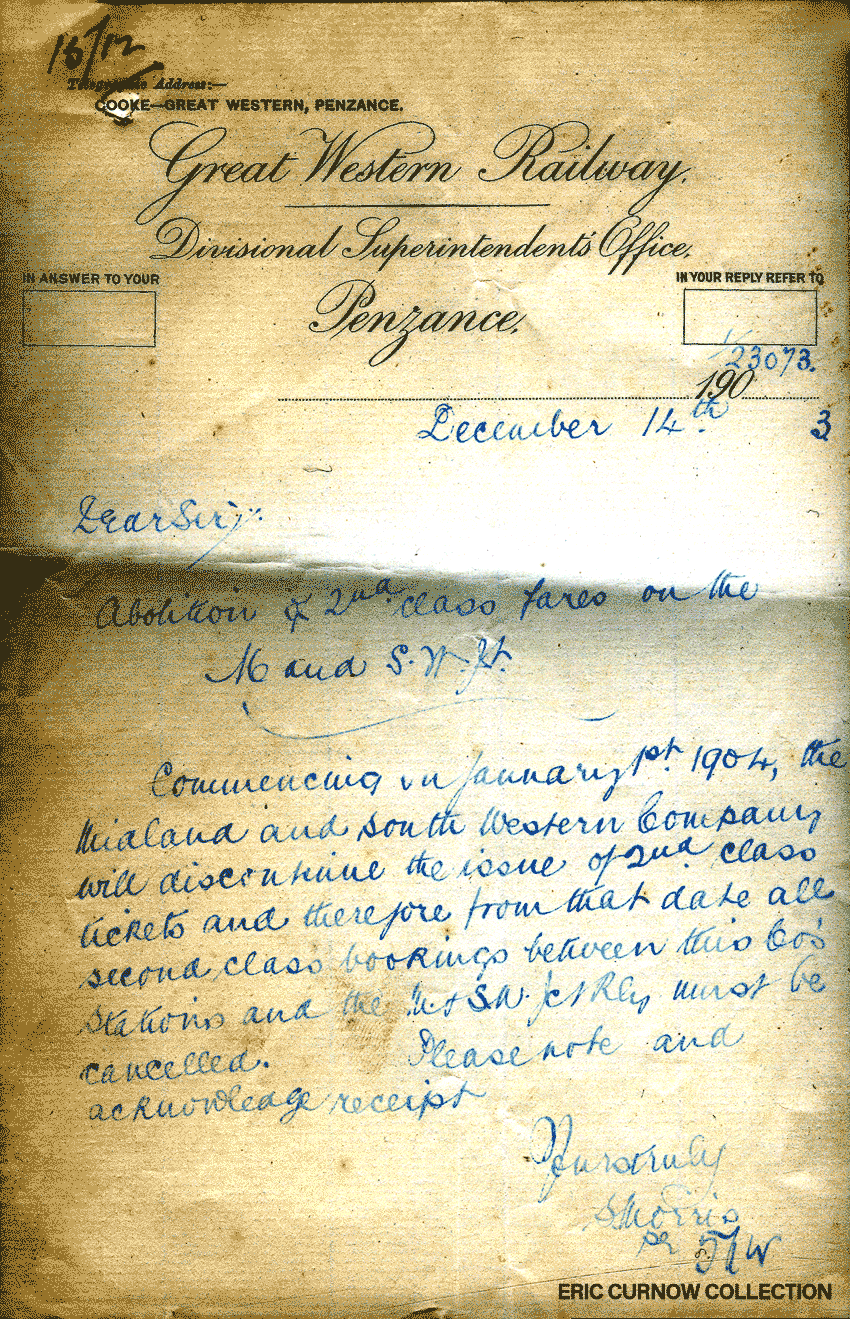 18/12
Telegraphic Address:—
COOKE—GREAT WESTERN, PENZANCE.
Great Western Railway.
Divisional Superintendent's Office,
IN ANSWER TO YOUR
IN YOUR REPLY REFER TO
Penzance,
1/23073.
190
December 14th 3
Dear Sir,
Abolition of 2nd class fares on the
M and S.W. Jt.
Commencing on January 1st. 1904, the
Midland and South Western Company
will discontinue the issue of 2nd class
tickets and therefore from that date all
second class bookings between this Co's
Stations and the M & S.W. Jct Rly must be
cancelled. Please note and
acknowledge receipt
Yours truly
S Morris
per
ERIC CURNOW COLLECTION